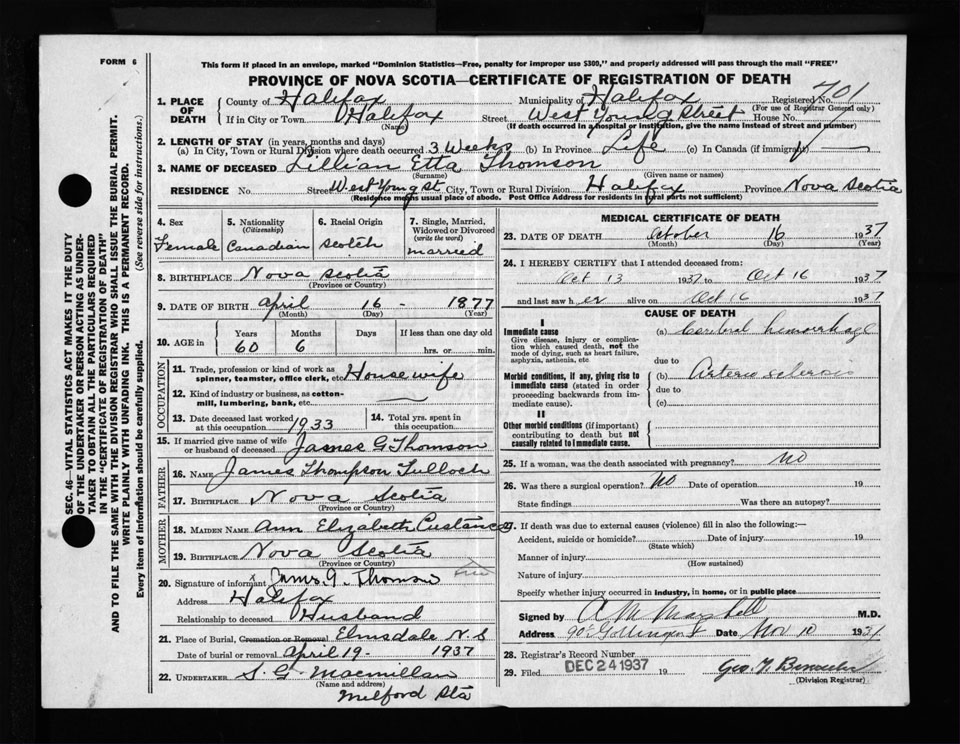 FORM 6
This form if placed in an envelope, marked "Dominion Statistics—Free, penalty for improper use $300," and properly addressed will pass through the mail "FREE"
PROVINCE OF NOVA SCOTIA—CERTIFICATE OF REGISTRATION OF DEATH
SEC. 46—VITAL STATISTICS ACT MAKES IT THE DUTY
OF THE UNDERTAKER OR PERSON ACTING AS UNDER-
TAKER TO OBTAIN ALL THE PARTICULARS REQUIRED
IN THE "CERTIFICATE OF REGISTRATION OF DEATH"
AND TO FILE THE SAME WITH THE DIVISION REGISTRAR WHO SHALL ISSUE THE BURIAL PERMIT.
WRITE PLAINLY WITH UNFADING INK. THIS IS A PERMANENT RECORD.
Every item of information should be carefully supplied. (See reverse side for instructions.)
1. PLACE OF DEATH County of Halifax Municipality of Halifax Registered No. 701
(For use of Registrar General only)
If in City or Town Halifax Street West Young Street House No.
(Name) (If death occurred in a hospital or institution, give the name instead of street and number)
2. LENGTH OF STAY (in years, months and days)
(a) In City, Town or Rural Division where death occurred 3 Weeks (b) In Province Life (c) In Canada (if immigrant) —
3. NAME OF DECEASED Lillian Etta Thomson
(Surname) (Given name or names)
RESIDENCE No. Street West Young St City, Town or Rural Division Halifax Province Nova Scotia
(Residence means usual place of abode. Post Office Address for residents in rural parts not sufficient)
4. Sex Female
5. Nationality (Citizenship) Canadian
6. Racial Origin Scotch
7. Single, Married, Widowed or Divorced (write the word) married
8. BIRTHPLACE Nova Scotia
(Province or Country)
9. DATE OF BIRTH April 16 - 1877
(Month) (Day) (Year)
10. AGE in Years 60 Months 6 Days If less than one day old hrs. or min.
OCCUPATION
11. Trade, profession or kind of work as spinner, teamster, office clerk, etc. Housewife
12. Kind of industry or business, as cotton-mill, lumbering, bank, etc. —
13. Date deceased last worked at this occupation 1933 14. Total yrs. spent in this occupation
15. If married give name of wife or husband of deceased James G Thomson
FATHER
16. NAME James Thompson Tulloch
17. BIRTHPLACE Nova Scotia
(Province or Country)
MOTHER
18. MAIDEN NAME Ann Elizabeth Custance
19. BIRTHPLACE Nova Scotia
(Province or Country)
20. Signature of informant James G. Thomson
Address Halifax
Relationship to deceased Husband
21. Place of Burial, Cremation or Removal Elmsdale N.S
Date of burial or removal April 19 - 1937
22. UNDERTAKER S. G. Macmillan
(Name and address)
Milford Sta
MEDICAL CERTIFICATE OF DEATH
23. DATE OF DEATH October 16 1937
(Month) (Day) (Year)
24. I HEREBY CERTIFY that I attended deceased from:
Oct 13 1937 to Oct 16 1937
and last saw her alive on Oct 16 1937
CAUSE OF DEATH
I
Immediate cause
Give disease, injury or complication which caused death, not the mode of dying, such as heart failure, asphyxia, asthenia, etc
(a) Cerebral hemorrhage
due to
Morbid conditions, if any, giving rise to immediate cause (stated in order proceeding backwards from immediate cause).
(b) Arterio sclerosis
due to
(c)
II
Other morbid conditions (if important) contributing to death but not causally related to immediate cause.
25. If a woman, was the death associated with pregnancy? No
26. Was there a surgical operation? No Date of operation 19
State findings Was there an autopsy?
27. If death was due to external causes (violence) fill in also the following:—
Accident, suicide or homicide? Date of injury 19
(State which)
Manner of injury
(How sustained)
Nature of injury
Specify whether injury occurred in industry, in home, or in public place
Signed by A M Marshall M.D.
Address Gottingen St Date Nov 10 1937
28. Registrar's Record Number
29. Filed DEC 24 1937 19
(Division Registrar)